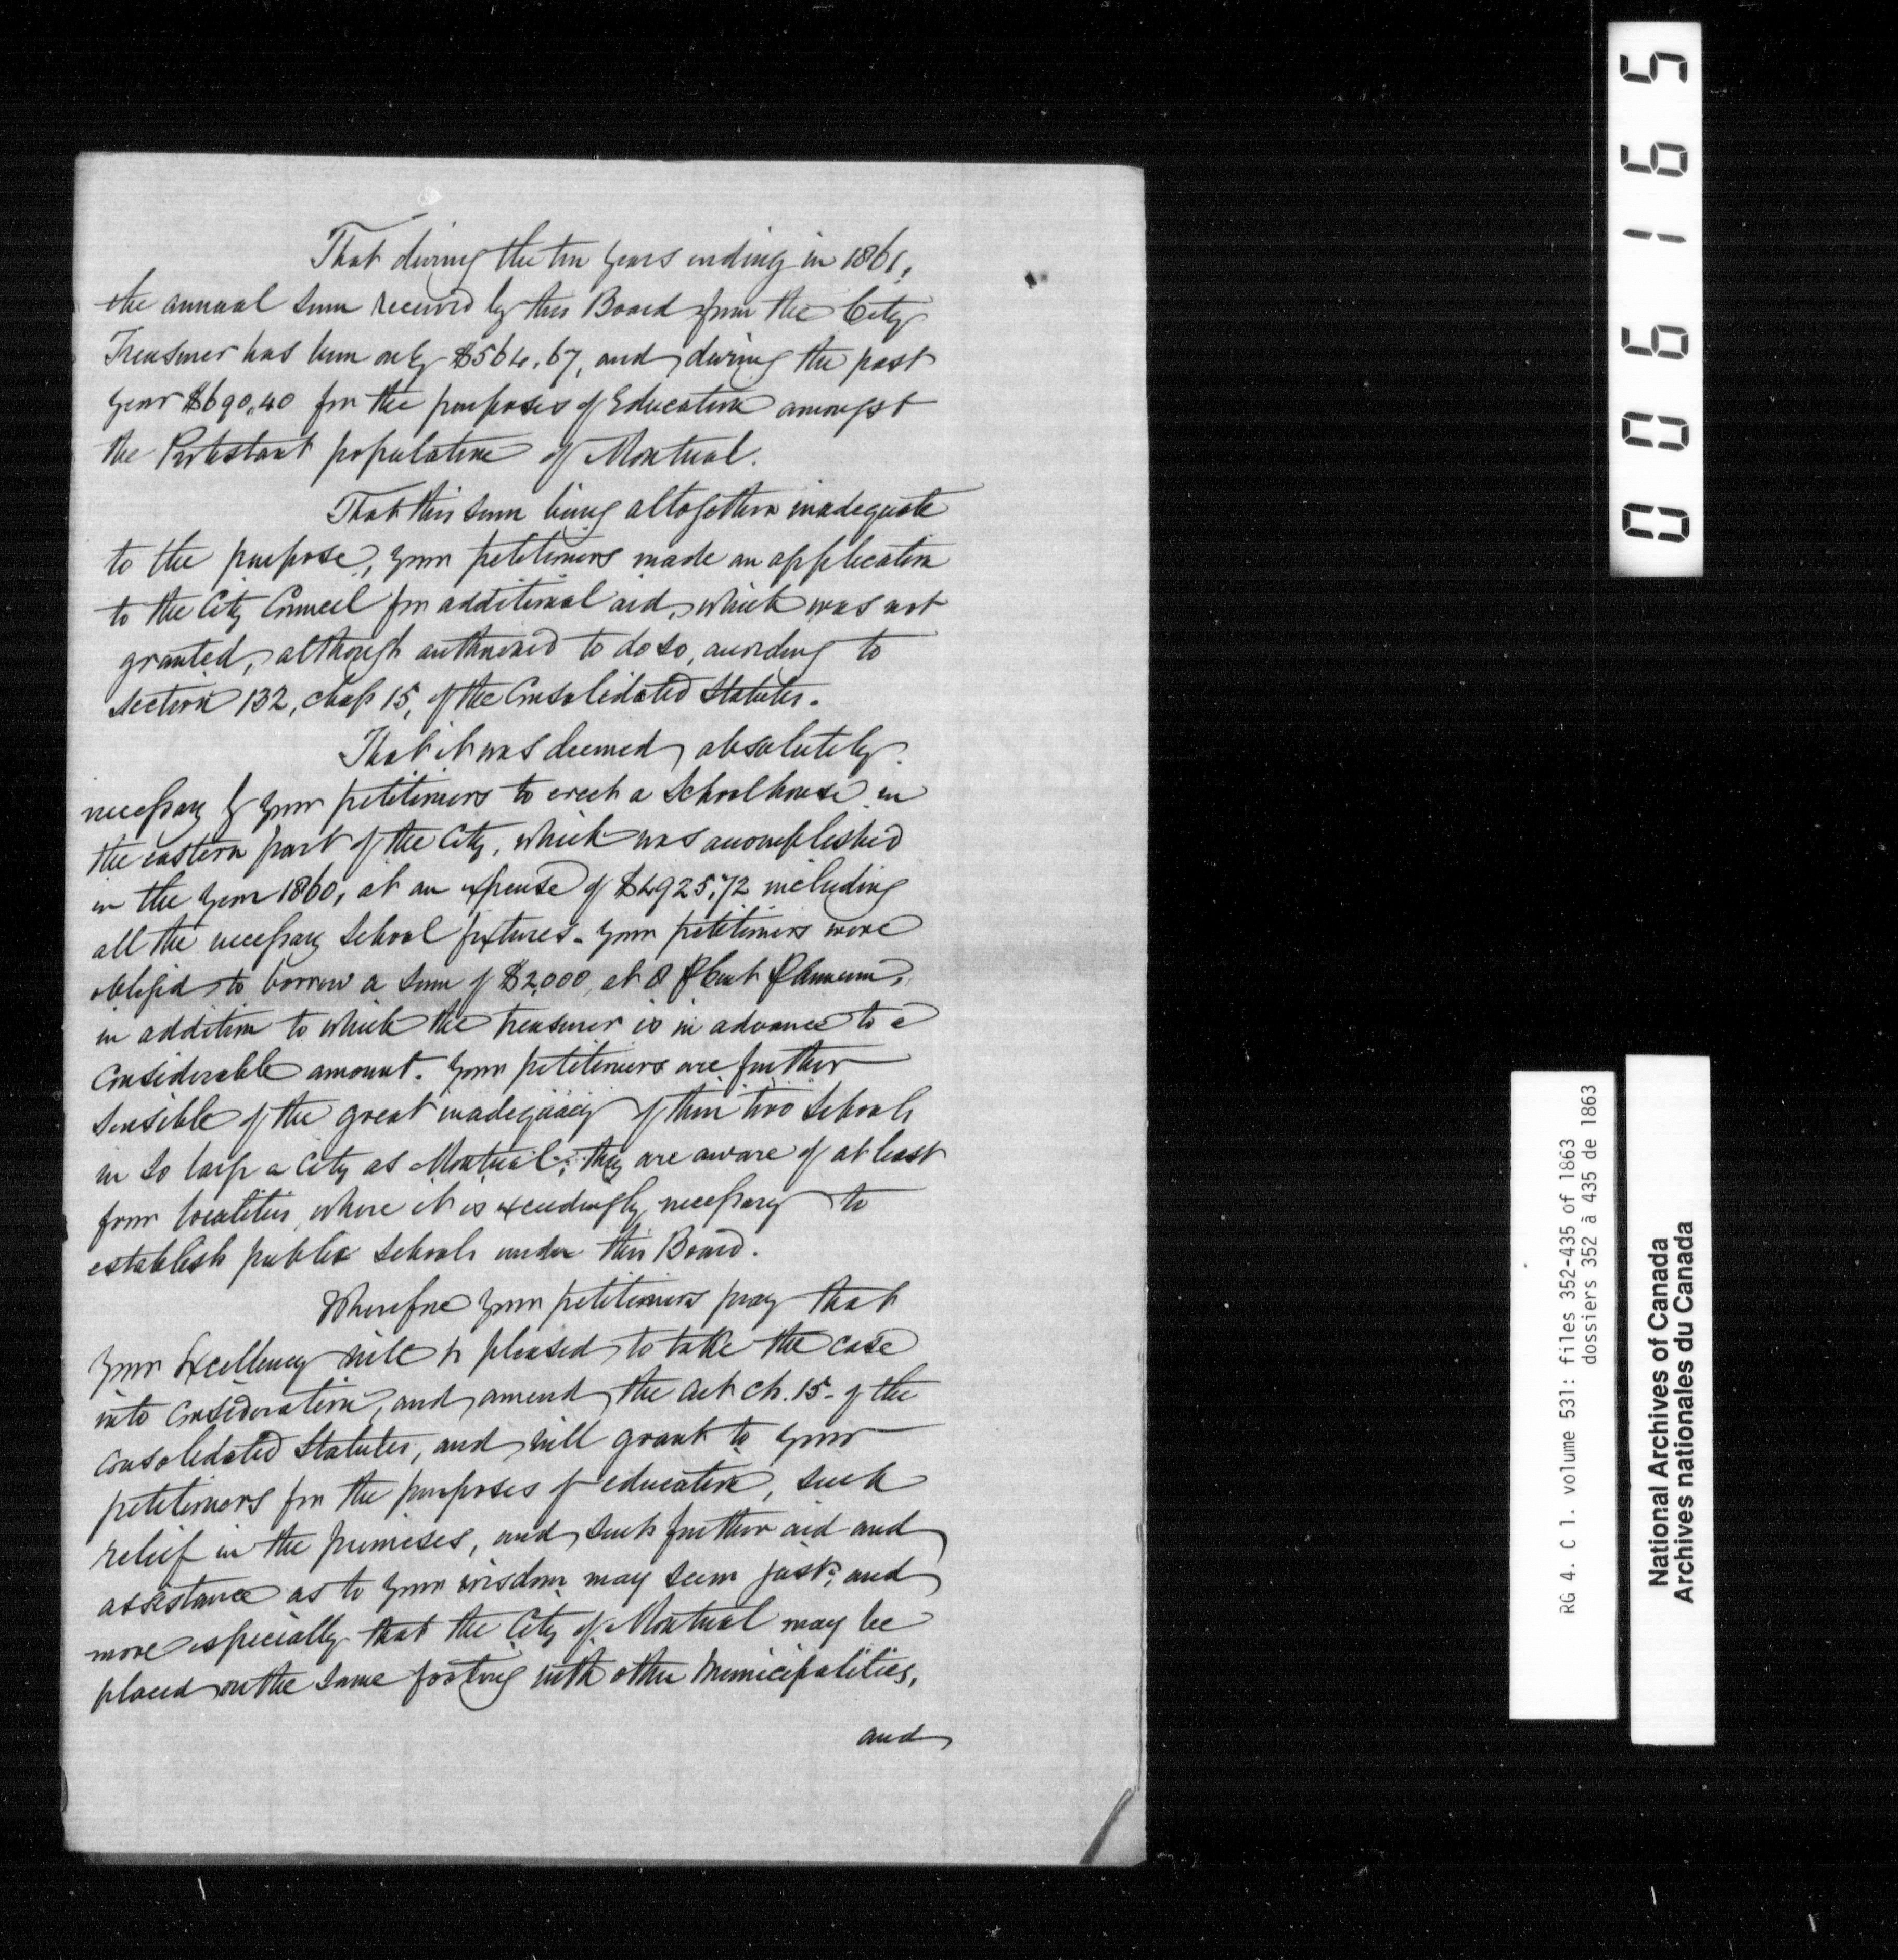 That during the ten years ending in 1861,
the annual sum received by this Board from the City
Treasurer has been only $564.67, and during the past
year $690.40 for the purposes of Education amongst
the Protestant population of Montreal.
That this sum being altogether inadequate
to the purpose, your petitioners made an application
to the City Council for additional aid, which was not
granted, although authorized to do so, according to
Section 132, chap 15, of the Consolidated Statutes.
That it was deemed absolutely
necessary by your petitioners to erect a Schoolhouse in
the eastern part of the City, which was accomplished
in the year 1860, at an expense of $4925,72 including
all the necessary School fixtures. Your petitioners were
obliged to borrow a sum of $2,000, at 8 P Cent P annum,
in addition to which the treasurer is in advance to a
Considerable amount. Your petitioners are further
Sensible of the great inadequacy of their two Schools
in so large a City as Montreal; they are aware of at least
four localities where it is exceedingly necessary to
establish public Schools under this Board.
Wherefore your petitioners pray that
Your Excellency will be pleased to take the case
into Consideration, and amend the Act ch. 15. of the
Consolidated Statutes, and will grant to your
petitioners for the purposes of education, such
relief in the premises, and such further aid and
assistance as to your wisdom may seem just, and
more especially that the City of Montreal may be
placed on the same footing with other Municipalities,
and
006165
RG 4. C 1. volume 531: files 352-435 of 1863
dossiers 352 à 435 de 1863
National Archives of Canada
Archives nationales du Canada